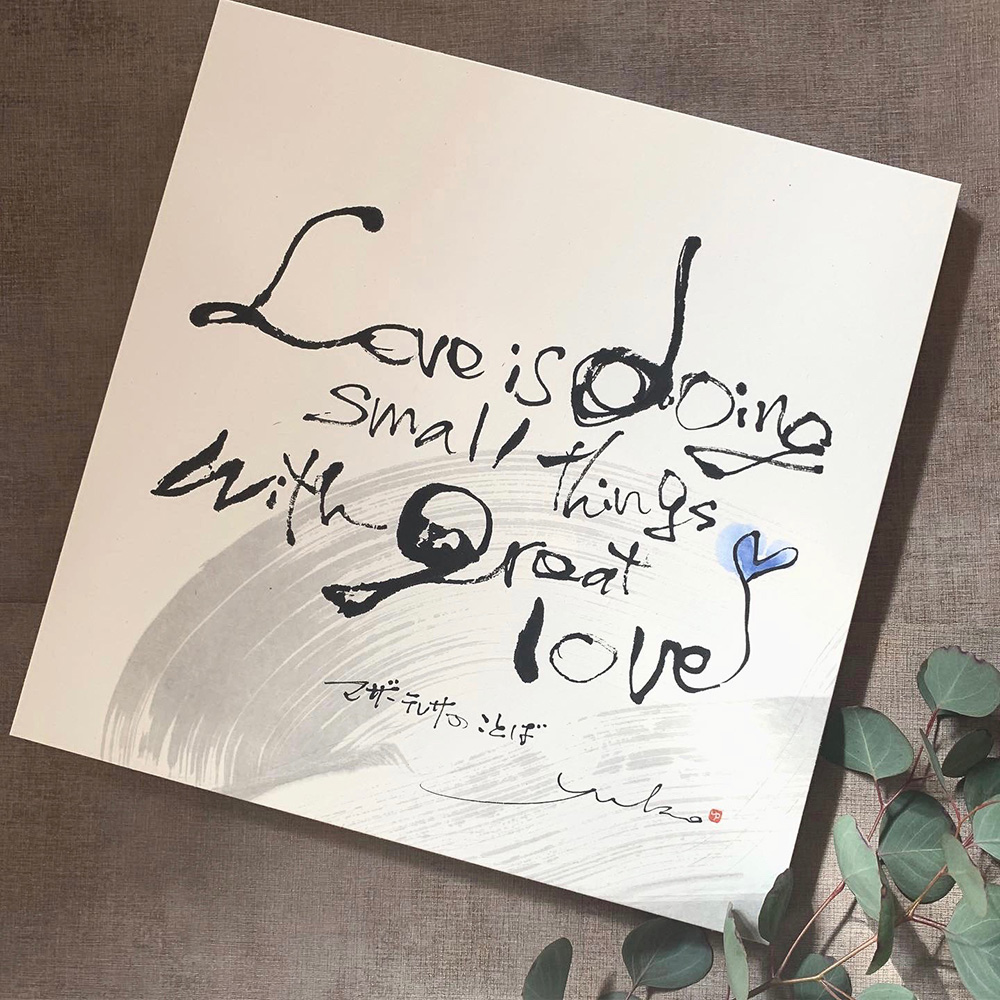 Love is doing
small things
with great
love
マザーテレサの ことば
Yuko
ゆ